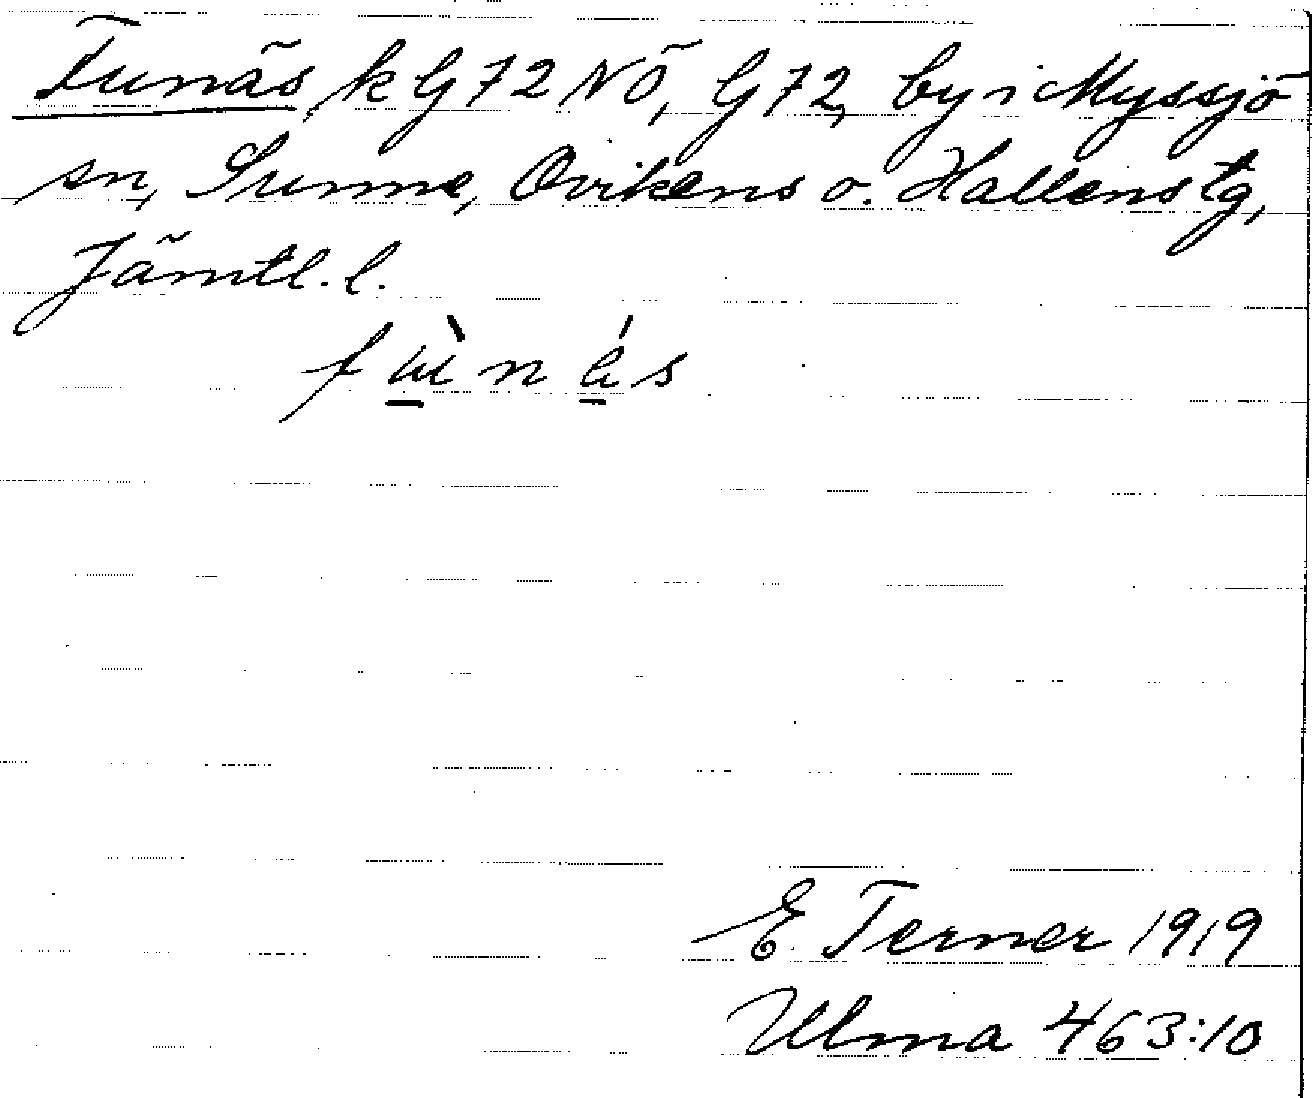 Funäs, k G72 NÖ, G72, by i Myssjö
sn, Sunne, Ovikens o. Hallens tg,
Jämtl. l.
E. Terner 1919
Ulma 463:10